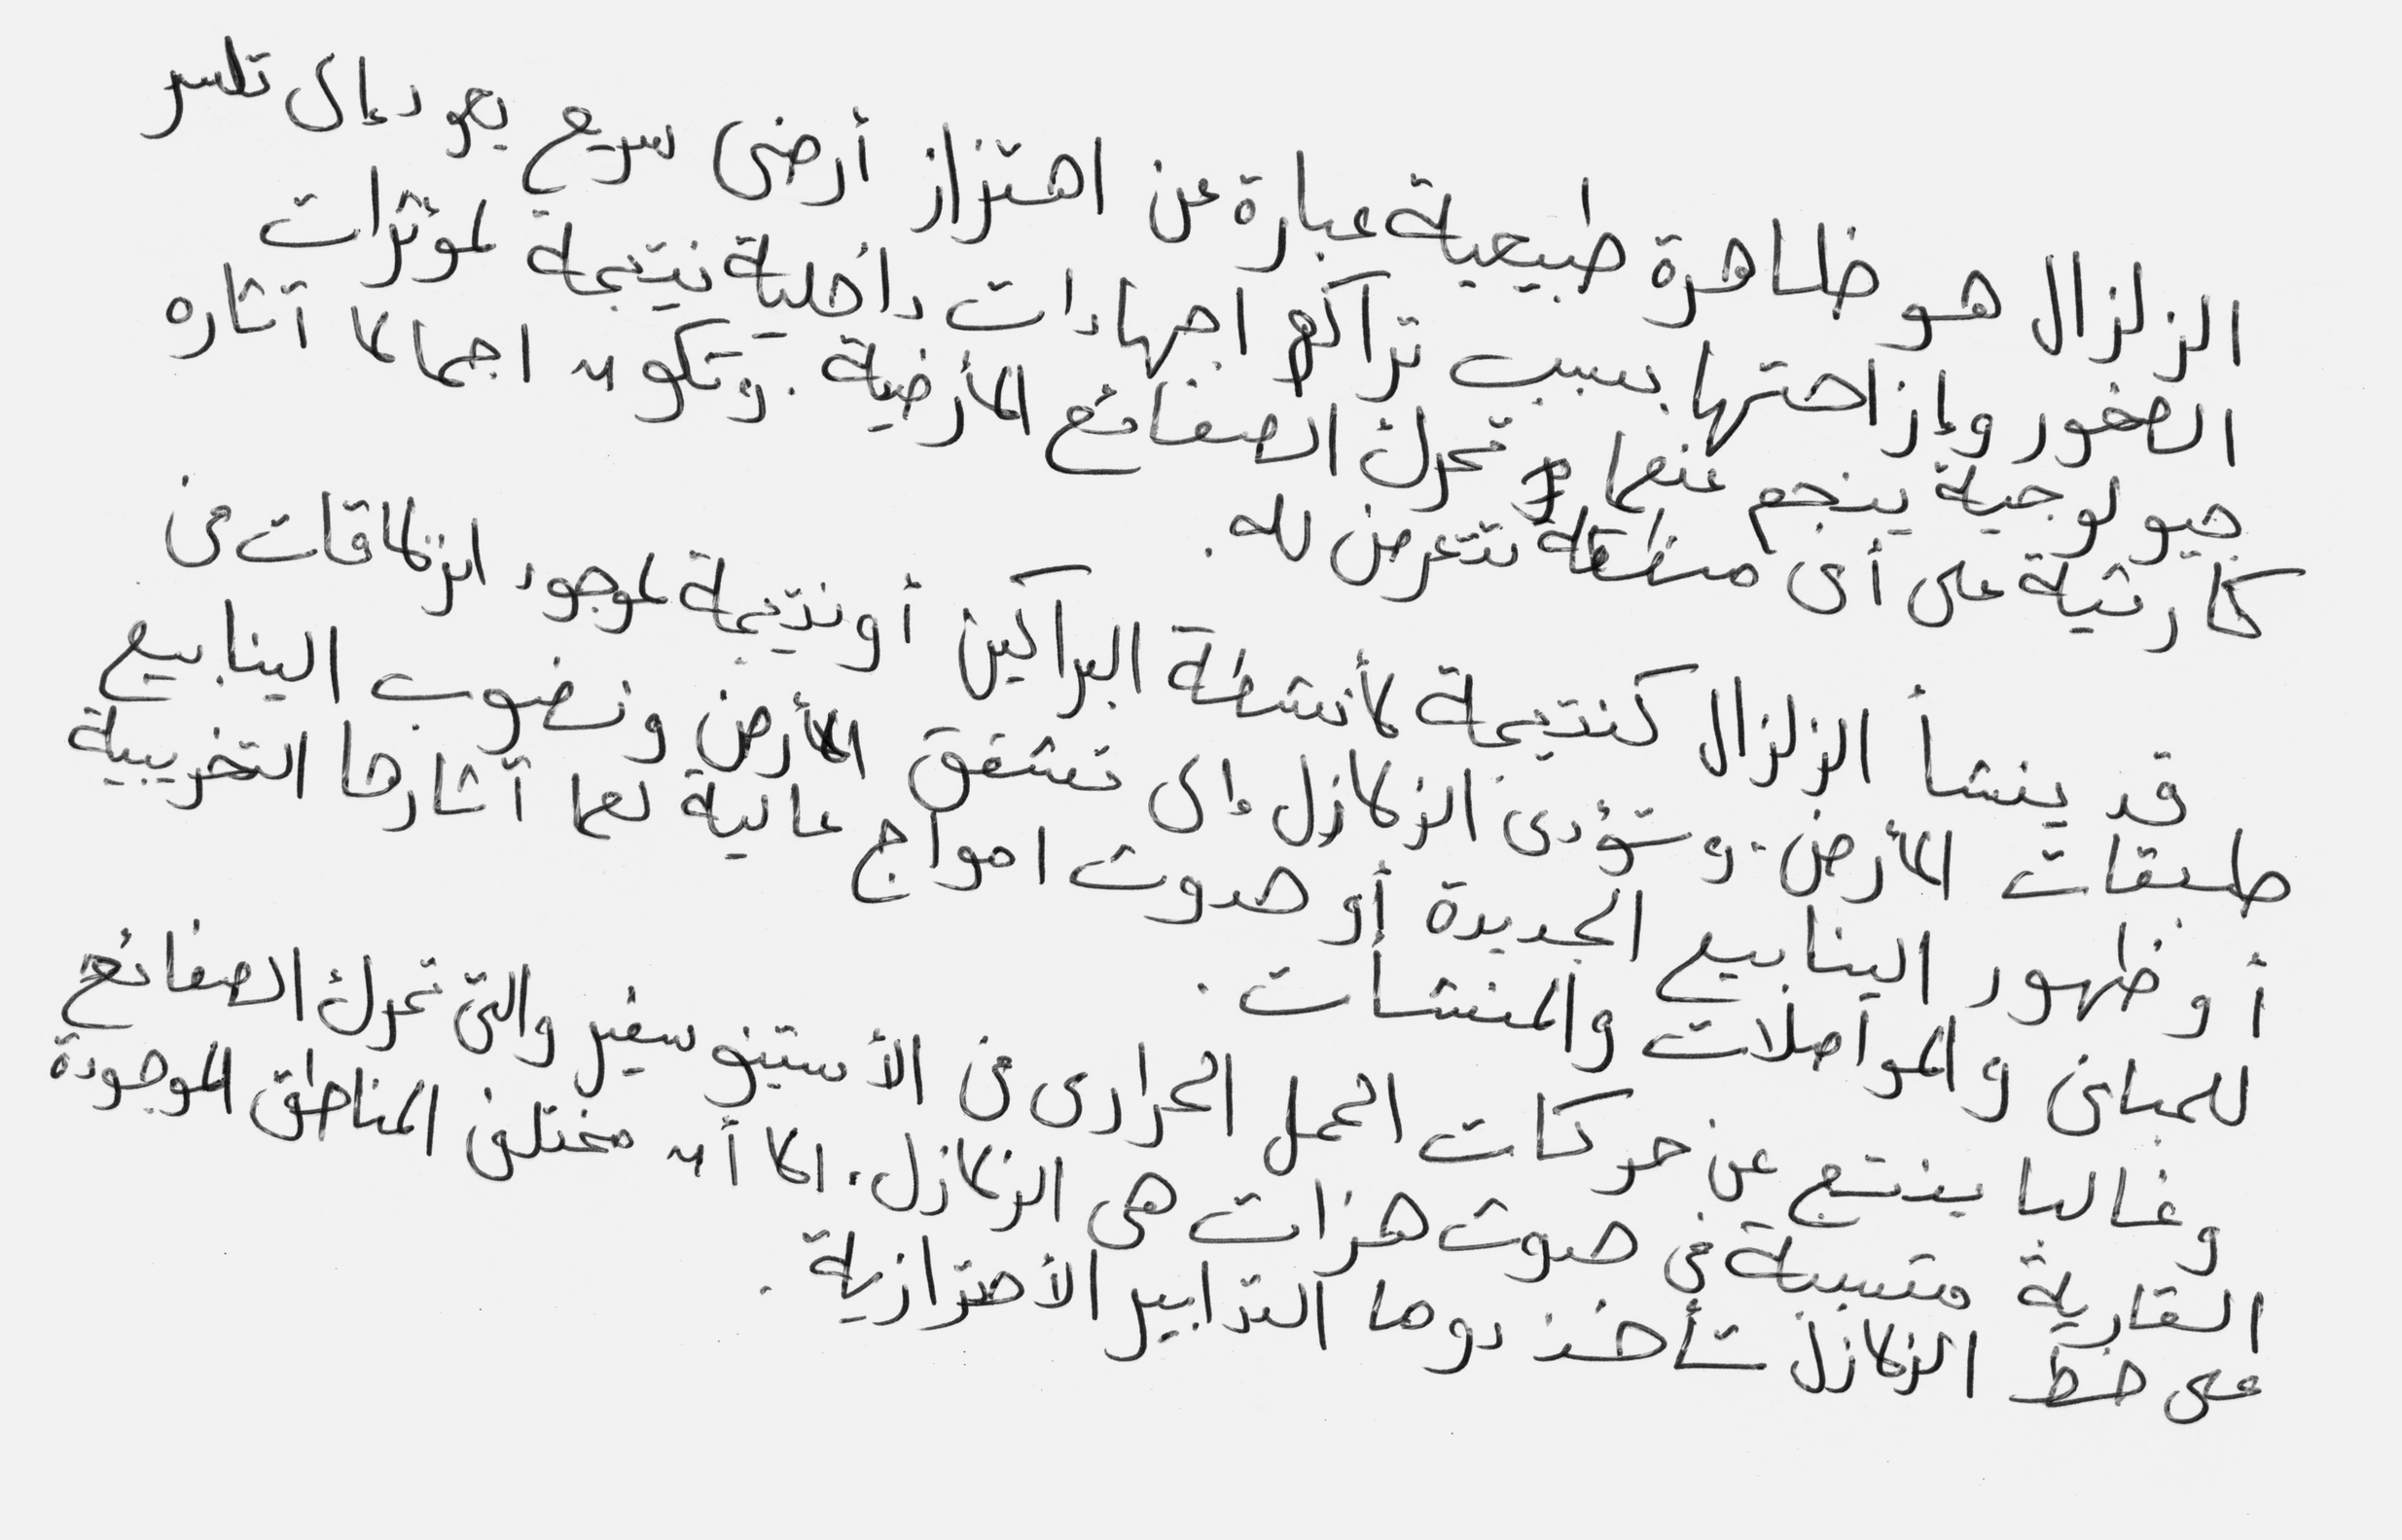 الزلزال هو ظاهرة طبيعية عبارة عن اهتزاز أرضى سريع يعود إلى تكسر
الصخور وإزاحتها بسبب تراكم اجهادات داخلية نتيجة لمؤثرات
جيولوجية ينجم عنها تحرك الصفائح الأرضية. وتكون اجمالا آثاره
كارثية على أى منطقة تتعرض له.
قد ينشأ الزلزال كنتيجة لأنشطة البراكين أو نتيجة لوجود انزلاقات فى
طبقات الأرض. وتؤدى الزلازل إلى تشقق الأرض ونضوب الينابيع
أو ظهور الينابيع الجديدة أو حدوث امواج عالية لها آثارها التخريبية
للمبانى والمواصلات والمنشأت.
وغالبا ينتج عن حركات الحمل الحرارى فى الأستينوسفير والتى تحرك الصفائح
القارية متسببة فى حدوث هزات هى الزلازل. الا أن مختلف المناطق الموجودة
على خط الزلازل تأخذ دوما التدابير الأحترازية.